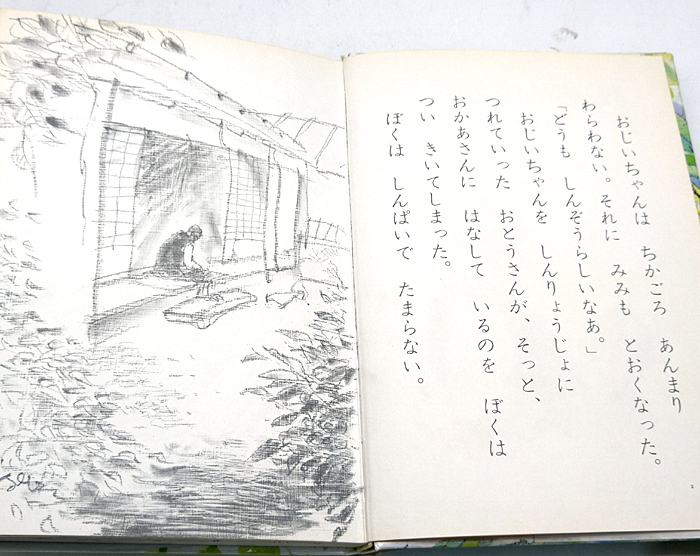 おじいちゃんは ちかごろ あんまり
わらわない。それに みみも とおくなった。
「どうも しんぞうらしいなあ。」
おじいちゃんを しんりょうじょに
つれていった おとうさんが、そっと、
おかあさんに はなして いるのを ぼくは
つい きいてしまった。
ぼくは しんぱいで たまらない。
2